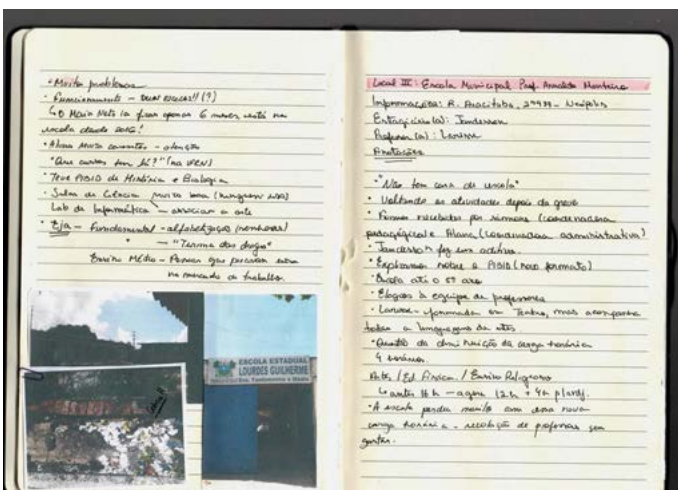 • Muitos problemas
• Funcionamento – Duas escolas!! (?)
↳ O Mário Neto ia ficar apenas 6 meses, está na
escola desde 2012!
• Alunos muito carentes – atenção
"Que cursos tem lá?" (na UFRN)
• Teve PIBID de História e Biologia
• Salas de Ciência muito boa (ninguém usa)
Lab de Informática — associar a arte
• Eja – Fundamental – alfabetização (senhoras)
" — "Turma das drogas"
Ensino Médio – Pessoas que precisam entrar
no mercado de trabalho.
ESCOLA ESTADUAL
LOURDES GUILHERME
Local III: Escola Municipal Prof. Arnaldo Monteiro
Informações: R. Aracitaba, – Neópolis
Estagiário(a): Janderson
Professor(a): Larisse
Anotações
• "Não tem cara de escola"
• Voltando as atividades depois da greve
• Fomos recebidos por (coordenadora
pedagógica) e Eliana (coordenadora administrativa)
• Janderson fez um aditivo.
• Explicamos sobre o PIBID (novo formato)
• Escola até o 5º ano
• Elogios à equipe de professores
• Larisse – formada em Teatro, mas acompanha
todas a linguagens da artes.
• Questão da diminuição da carga horária
4 horários.
Artes / Ed. Física / Ensino Religioso
↳ antes – agora 12h + 4h p/ planj.
• A escola perdeu muito com essa nova
carga horária – de professoras sem